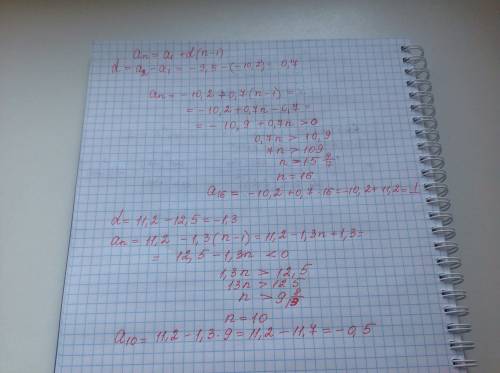 an = a1 + d(n-1)
d = a2 - a1 = -9,5 - (-10,2) = 0,7
an = -10,2 + 0,7(n-1) =
= -10,2 + 0,7n - 0,7 =
= -10,9 + 0,7n > 0
0,7n > 10,9
7n > 109
n > 15 4/7
n = 16
a16 = -10,2 + 0,7·16 = -10,2 + 11,2 = 1
d = 11,2 - 12,5 = -1,3
an = 11,2 - 1,3(n-1) = 11,2 - 1,3n + 1,3 =
= 12,5 - 1,3n < 0
1,3n > 12,5
13n > 125
n > 9 8/9
n = 10
a10 = 11,2 - 1,3·9 = 11,2 - 11,7 = -0,5